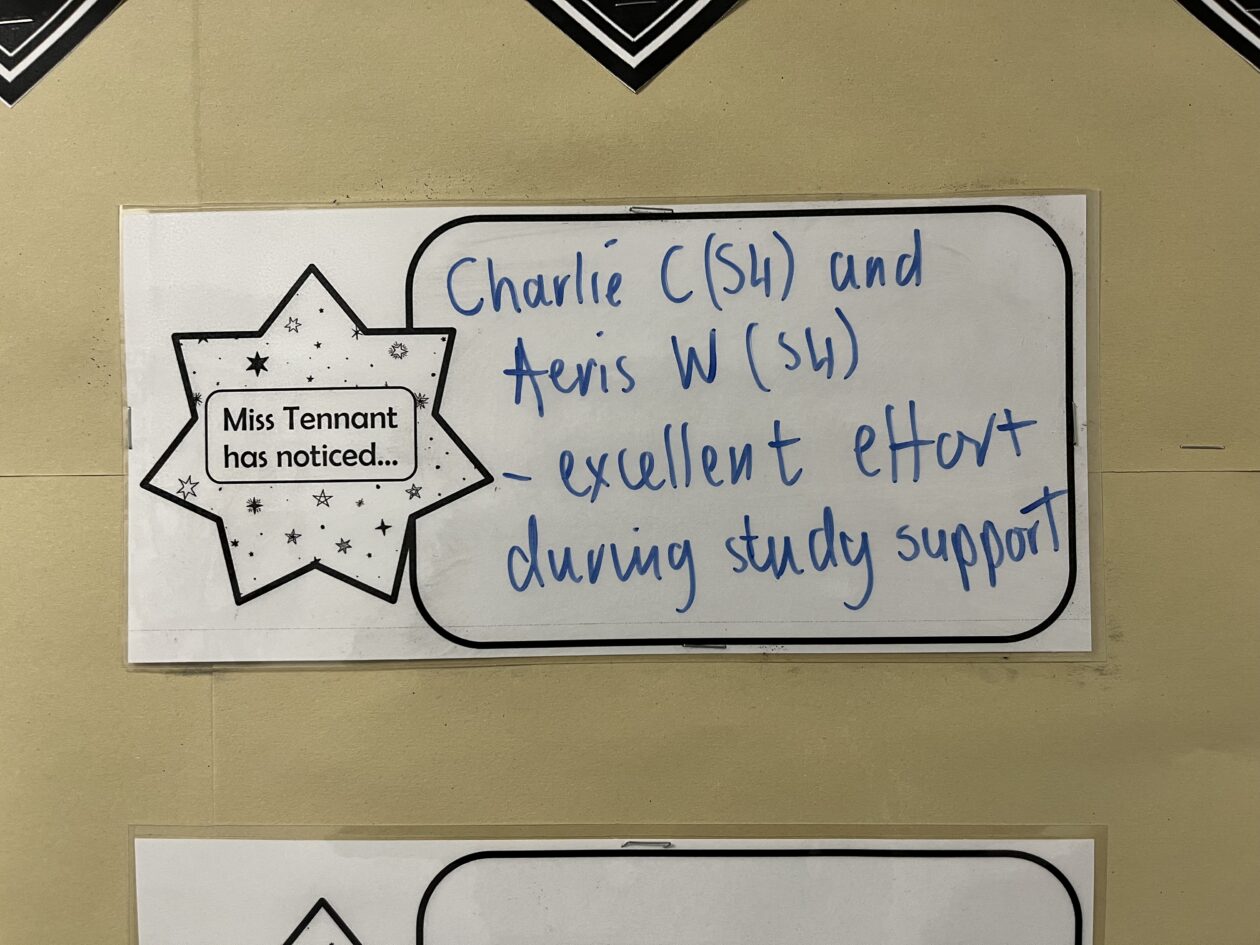 Miss Tennant
has noticed...
Charlie C (S4) and
Aeris W (S4)
- excellent effort
during study support